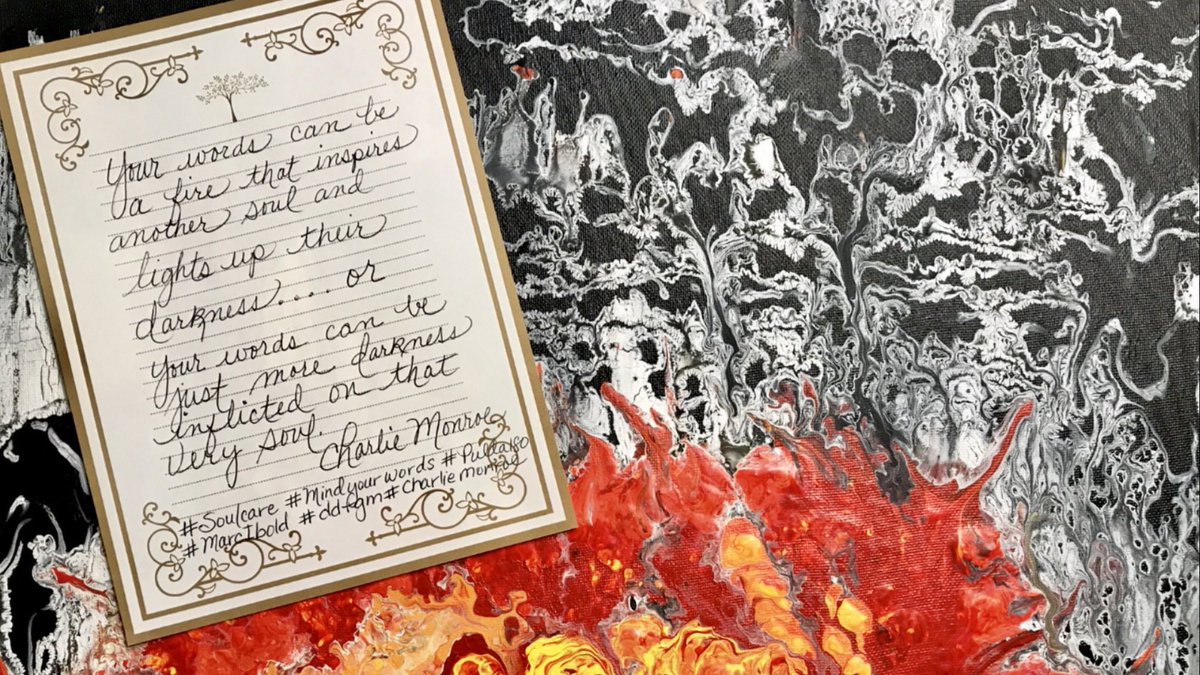 Your words can be
a fire that inspires
another soul and
lights up their
darkness.... or
Your words can be
just more darkness
inflicted on that
very soul.
Charlie Monroe
#Soulcare #Mindyourwords
#MarcIbold #ddtgm #Charlie